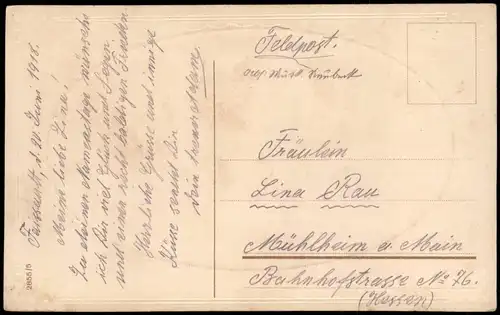 d. 20. Juni 1918.
Meine liebe Lina!
Zu deinem Namenstage wünsche
ich Dir viel Glück und Segen
und einen recht baldigen Frieden
Herzliche Grüsse und innige
Küsse sendet Dir
Dein treuer Adam.
Feldpost.
Fräulein
Lina Rau
Mühlheim a. Main
Bahnhofstrasse No 76.
(Hessen)
2655/5